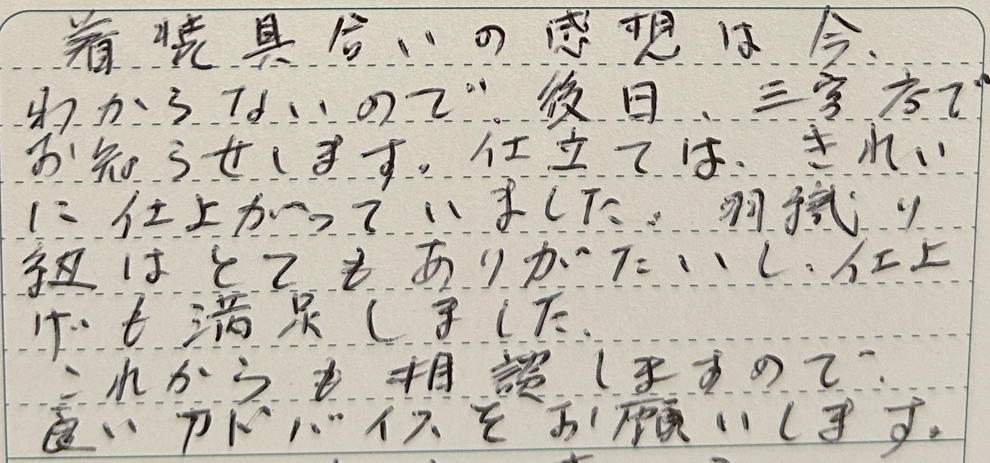 着焼具合いの感想は今、
わからないので、後日、三字方で
お知らせします。仕立ては、きれい
に仕上がっていました。羽織り
紐はとてもありがたいし、仕上
げも満足しました。
これからも相談しますので、
良いアドバイスをお願いします。